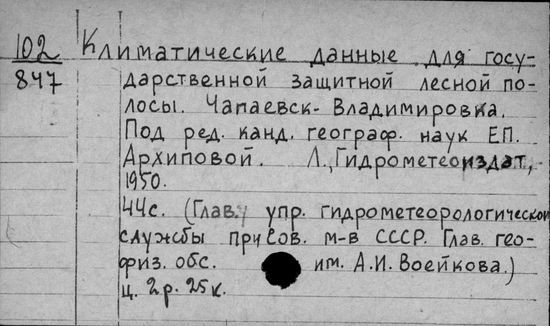 102 Климатические данные для госу-
847 дарственной защитной лесной по-
лосы. Чапаевск-Владимировка.
Под ред. канд. географ. наук Е.П.
Архиповой. Л., Гидрометеоиздат,
1950.
44с. (Глав. упр. гидрометеорологической
службы при Сов. м-в СССР. Глав. гео-
физ. обс. им. А.И. Воейкова.)
Ц. 2р. 25к.